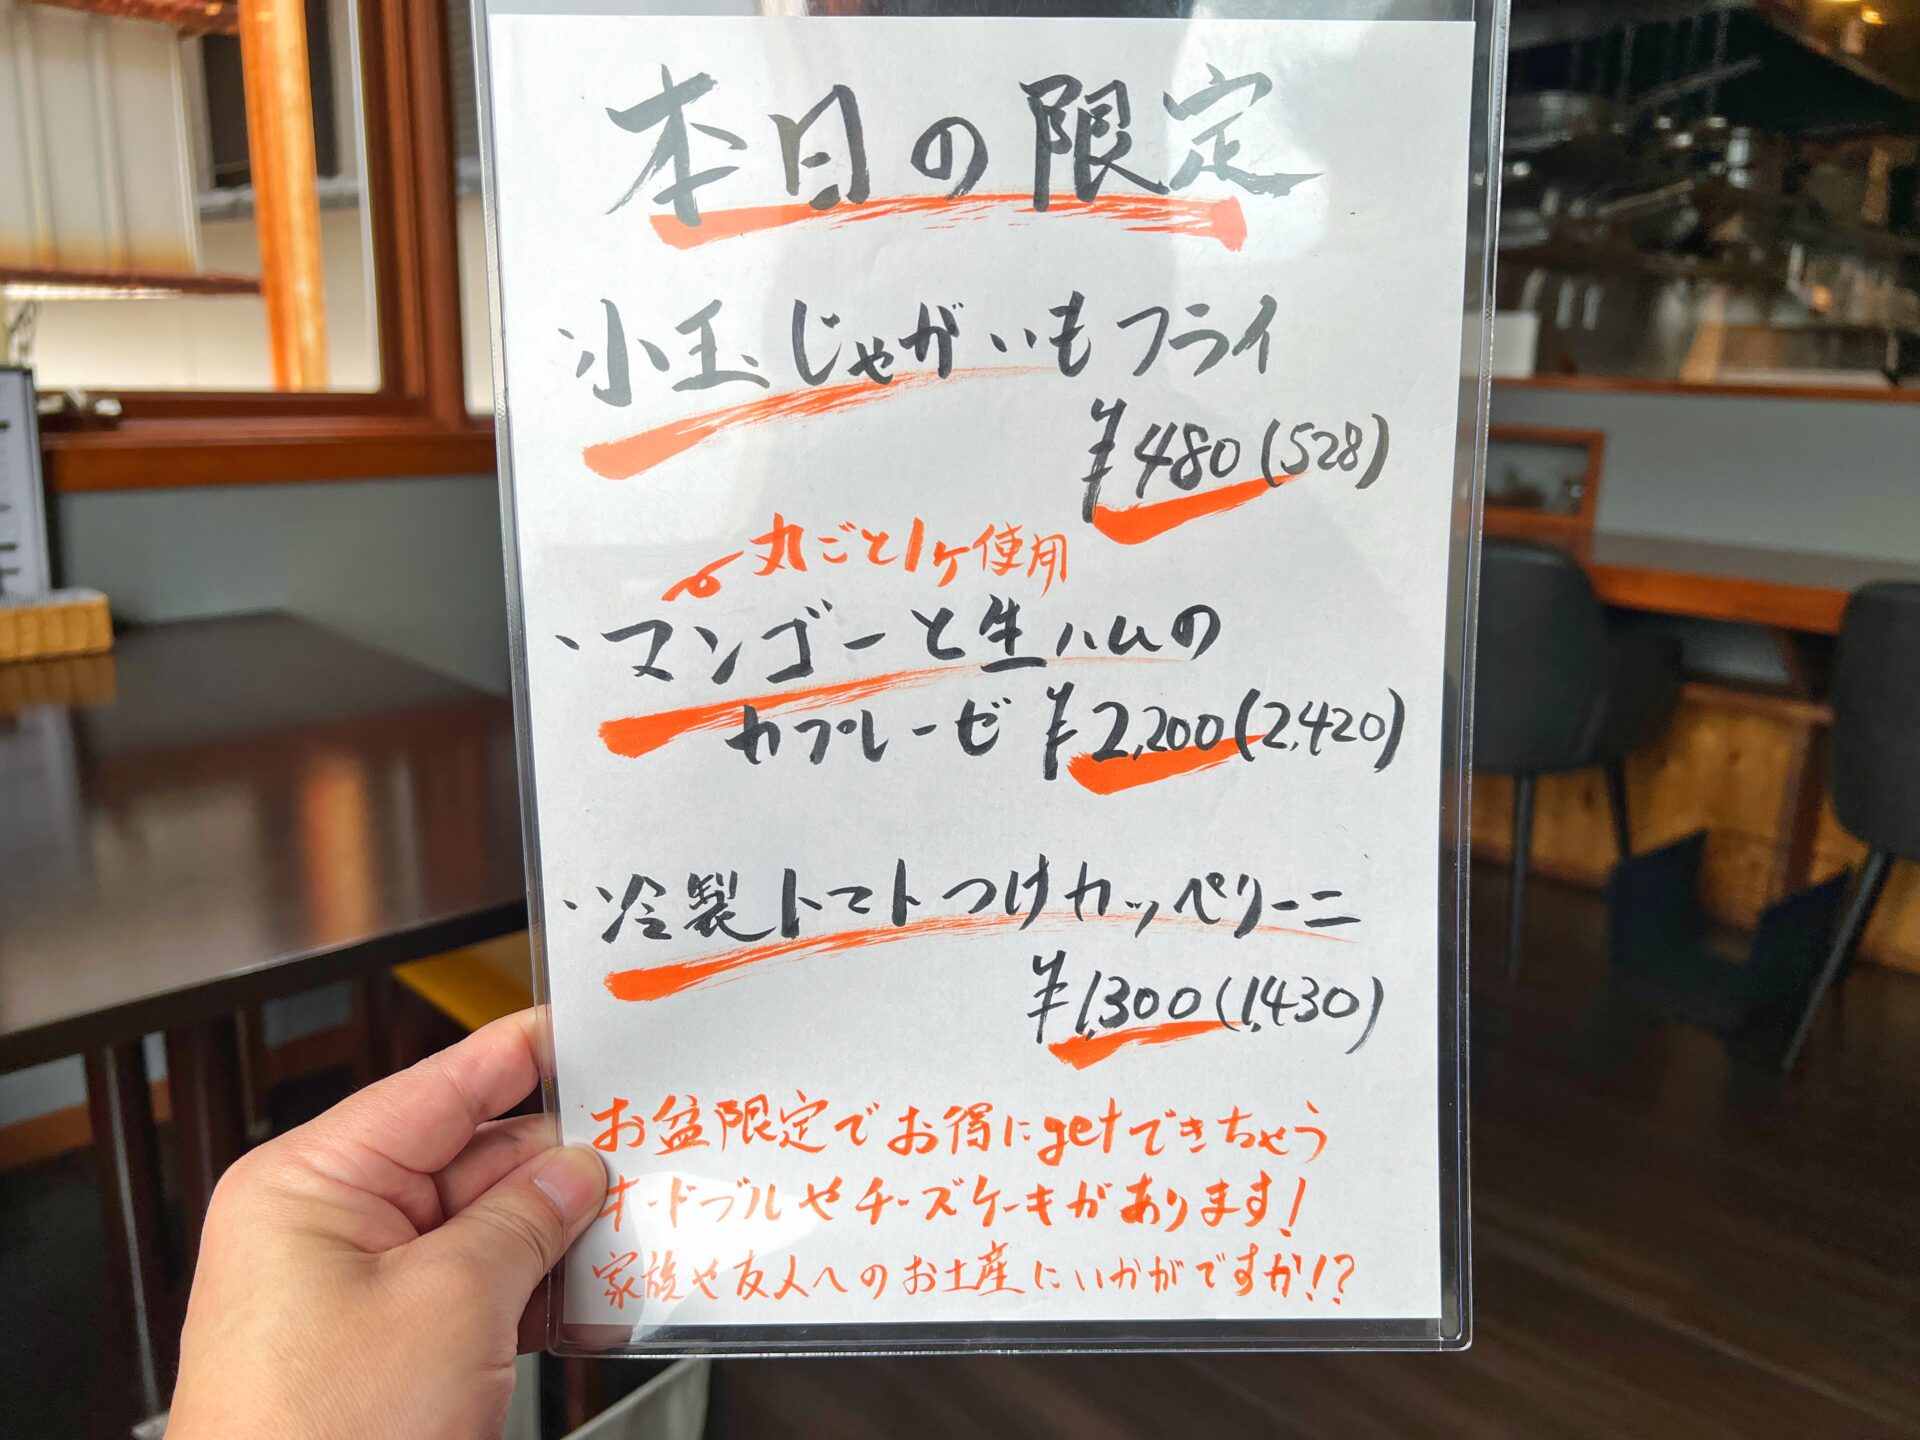 本日の限定
・小玉じゃがいもフライ
¥480(528)
丸ごと1ヶ使用
・マンゴーと生ハムの
カプレーゼ ¥2,200(2,420)
・冷製トマトつけカッペリーニ
¥1,300(1,430)
お盆限定でお得にgetできちゃう
オードブルやチーズケーキがあります!
家族や友人へのお土産にいかがですか!?